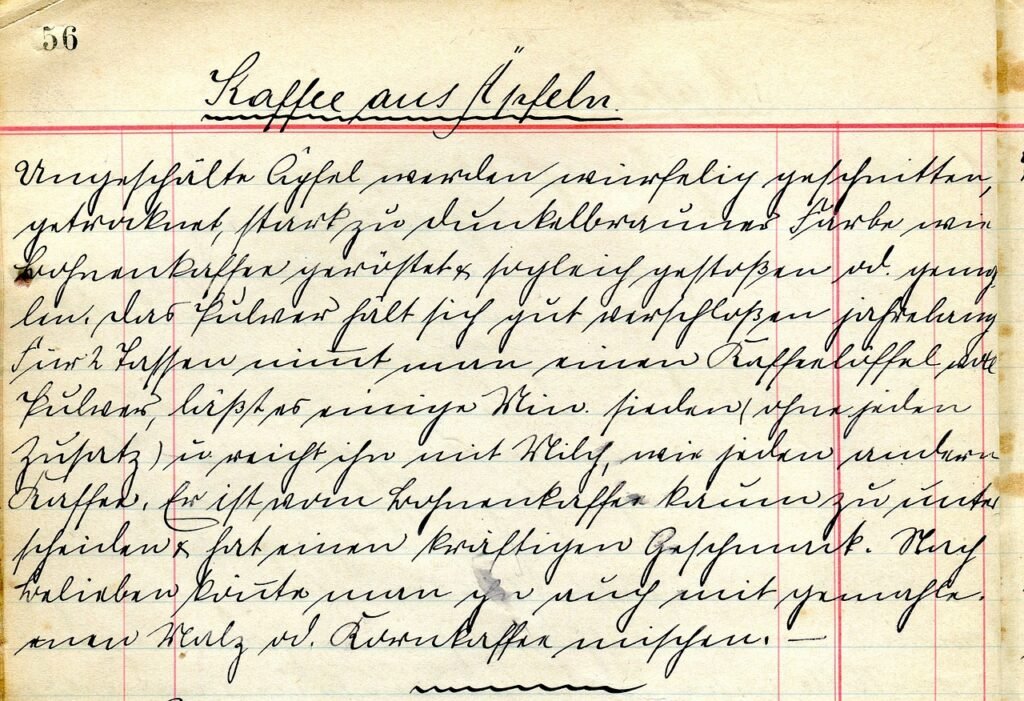 56
Kaffee aus Äpfeln.
Ungeschälte Äpfel werden würfelig geschnitten,
getrocknet, stark zu dunkelbrauner Farbe wie
Bohnenkaffee geröstet & sogleich gestoßen od. gemah-
len. Das Pulver hält sich gut verschloßen jahrelang
Für 2 Tassen nim̅t man einen Kaffeelöffel voll
Pulver, läßt es einige Min. sieden (ohne jeden
Zusatz) u. reicht ihn mit Milch, wie jeden andern
Kaffee. Er ist vom Bohnenkaffee kaum zu unter
scheiden & hat einen kräftigen Geschmack. Nach
Belieben kön̅te man ihn auch mit gemahle-
nen Malz od. Kornkaffee mischen. —